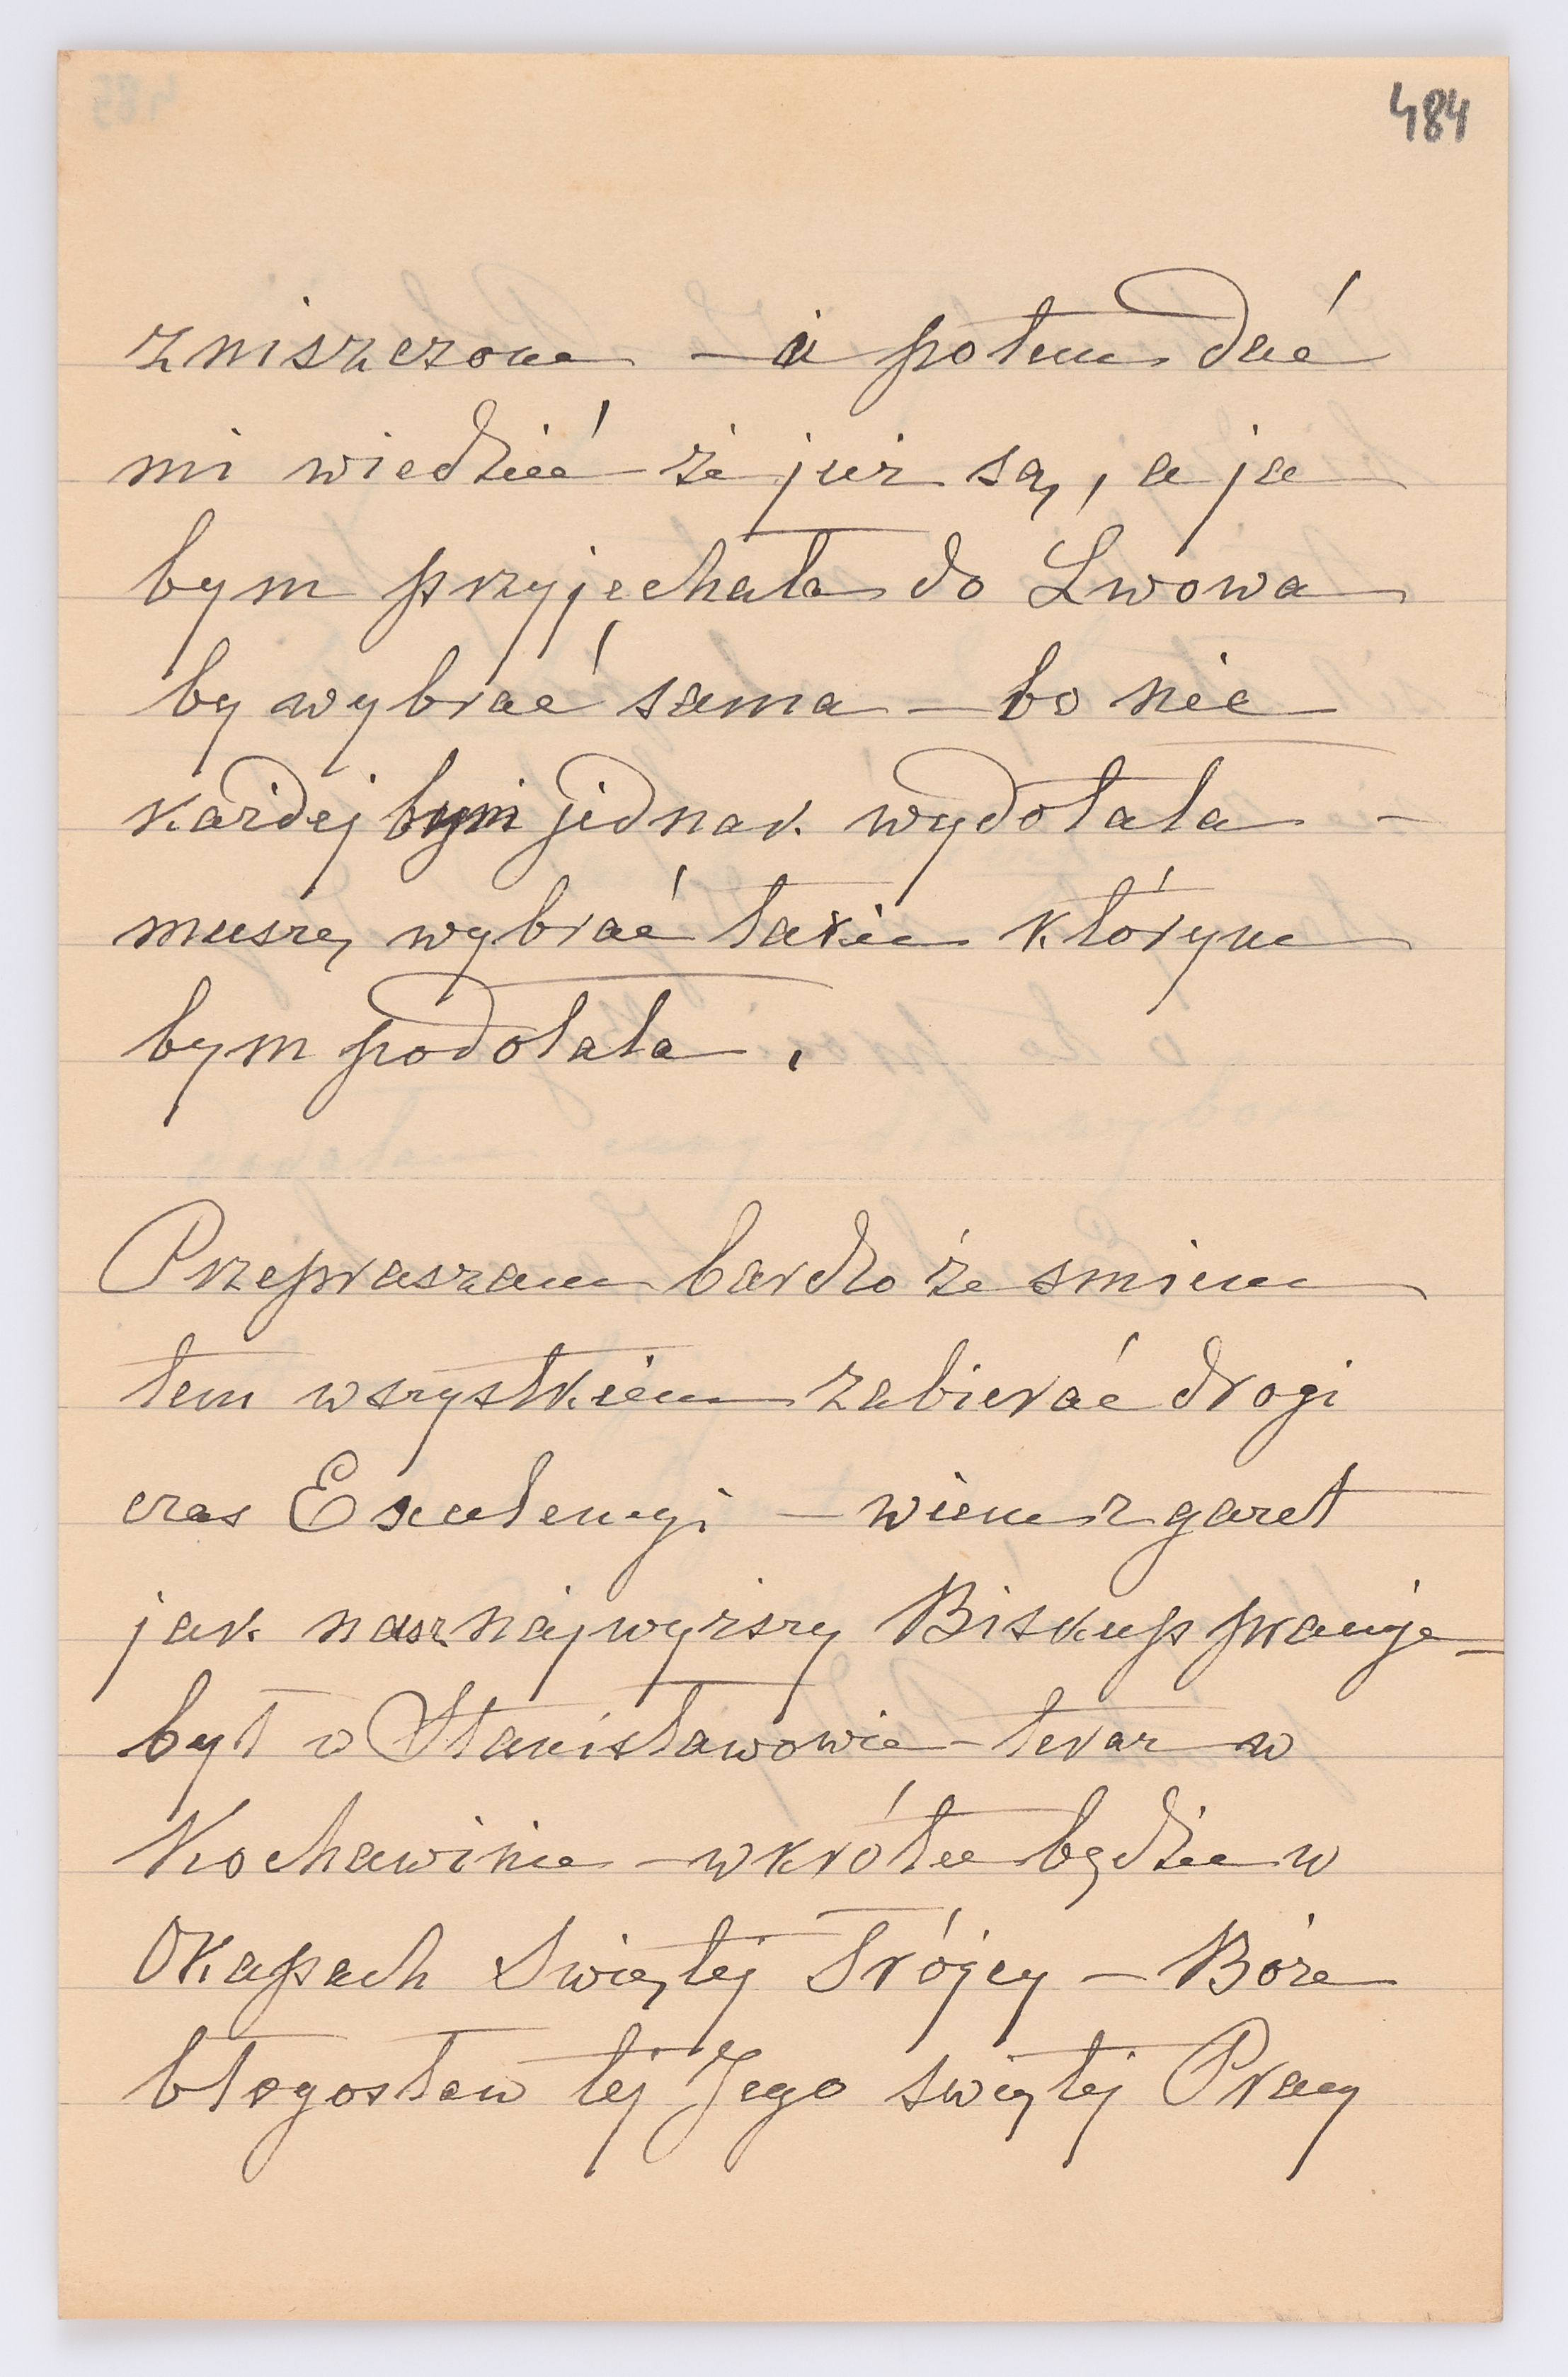 484
zniszczone – i potem dać
mi wiedzieć że już są, a ja
bym przyjechała do Lwowa
by wybrać sama – bo nie
każdej bym jednak wydołała –
muszę wybrać takie którym
bym podołała.
Przepraszam bardzo że smiem
tem wszystkiem zabierać drogi
czas Excelencyi – wiem z gazet
jak nasz najwyższy Biskup pracuje –
był w Stanisławowie – teraz w
Kochawinie – wkrótce będzie w
Okopach Swiętej Trójcy – Boże
błogosław tej Jego swiętej Pracy